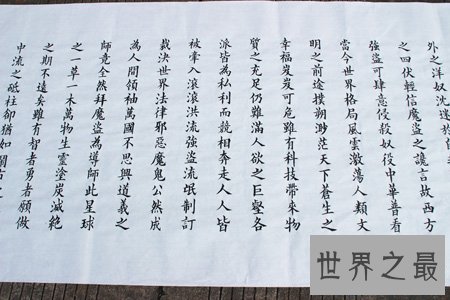 外之洋奴沈迷於
之四伏輕信魔盜之謊言故西方
強盜可肆意侵殺奴役中華普看
當今世界格局風雲激蕩人類文
明之前途撲朔渺茫天下蒼生之
幸福岌岌可危雖有科技帶來物
質之充足仍難滿人欲之巨壑各
派皆為私利而競相奔走人人皆
被牽入滾滾洪流強盜流氓制訂
裁決世界法律邪惡魔鬼公然成
為人間領袖萬國不思興道義之
師竟全然拜魔盜為導師此星球
之一草一木萬物生靈塗炭滅絕
之期不遠矣雖有智者勇者願做
中流之砥柱卻猶如
世界之最